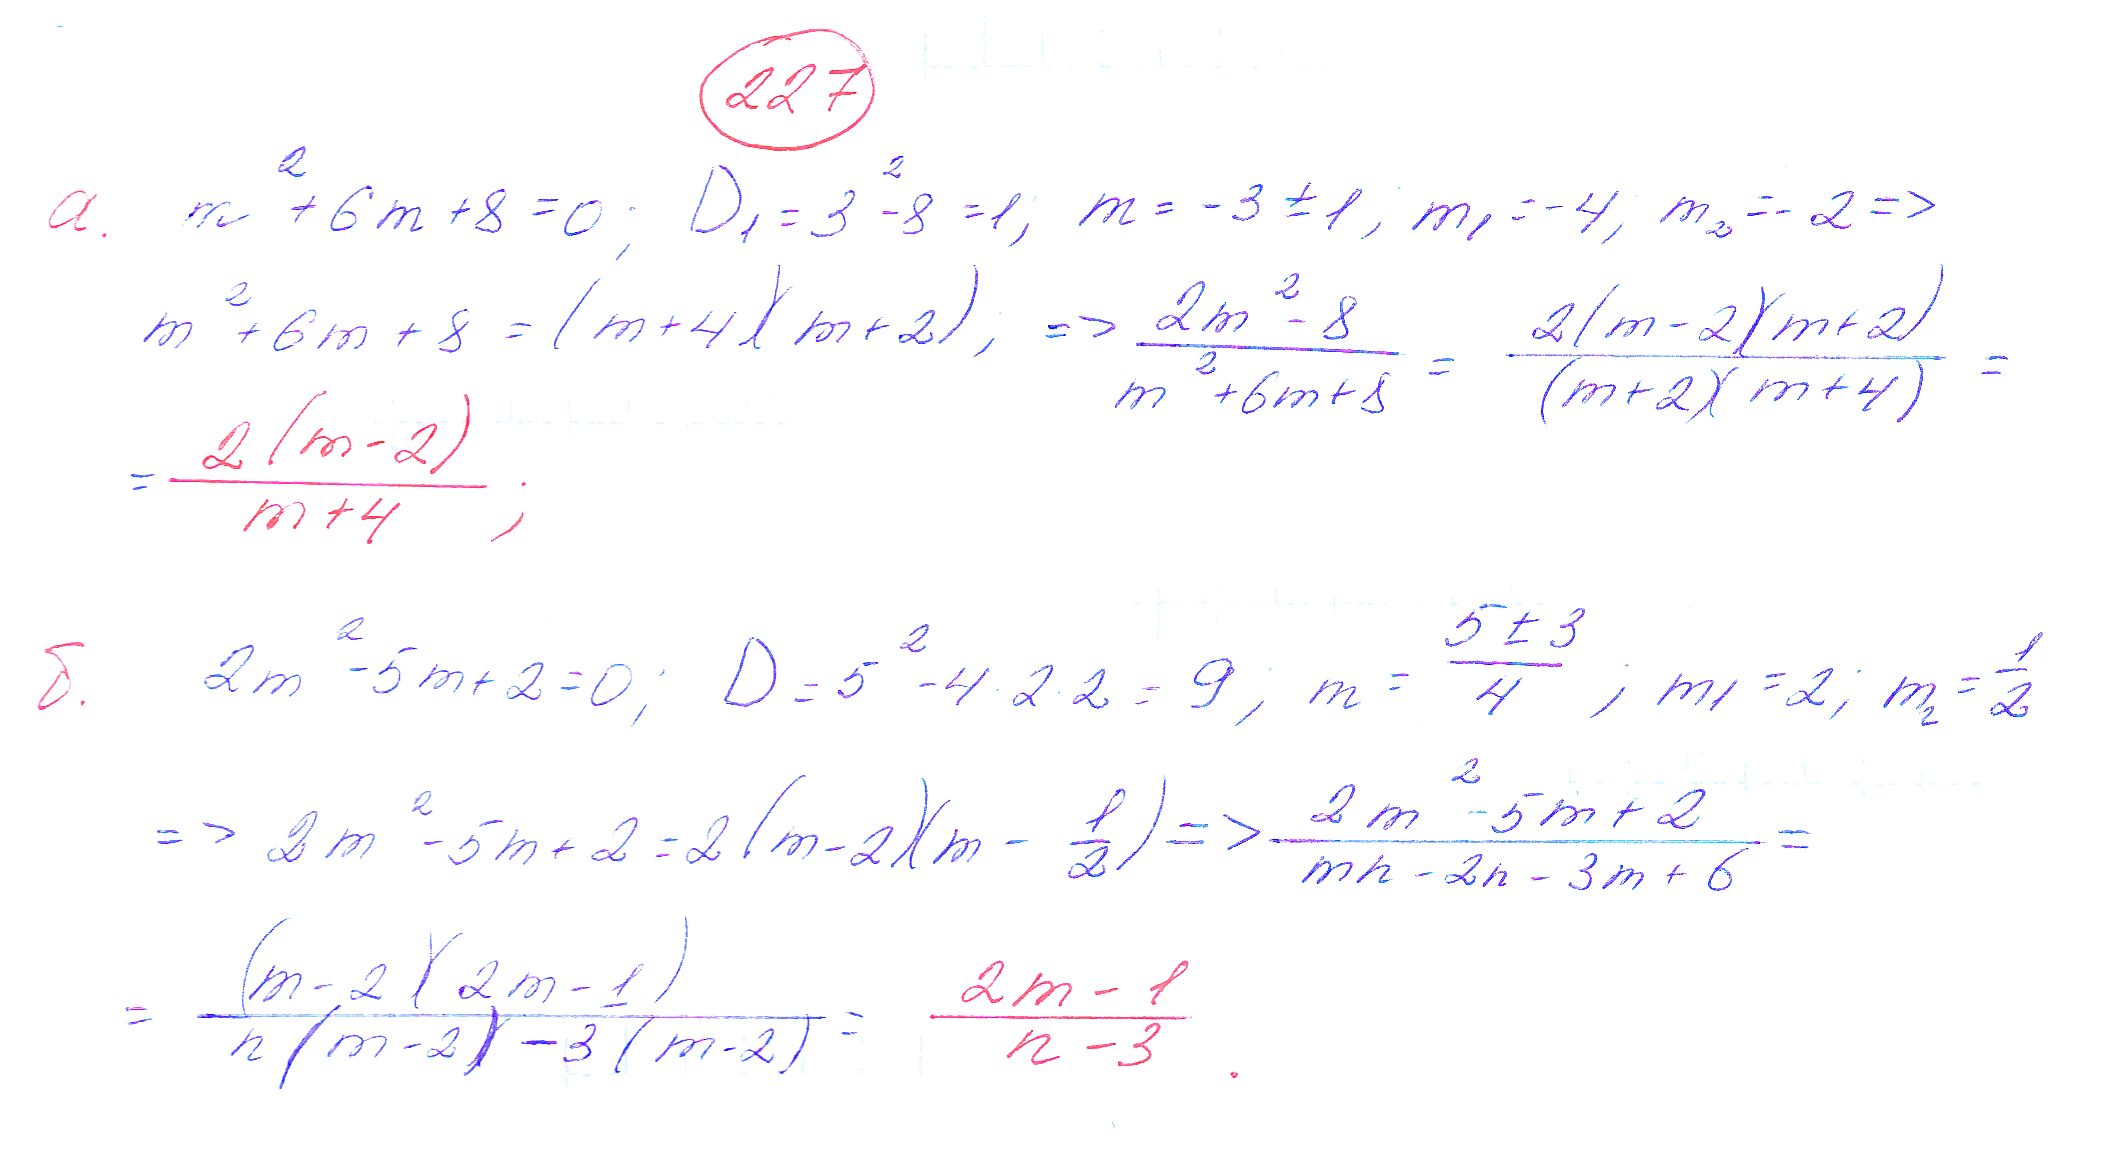 227
а. m²+6m+8=0; D₁=3²-8=1; m=-3±1, m₁=-4; m₂=-2 =>
m²+6m+8=(m+4)(m+2); => (2m²-8)/(m²+6m+8) = (2(m-2)(m+2))/((m+2)(m+4)) =
= (2(m-2))/(m+4);
б. 2m²-5m+2=0; D=5²-4·2·2=9; m=(5±3)/4; m1=2; m₂=1/2
=> 2m²-5m+2=2(m-2)(m-1/2) => (2m²-5m+2)/(mn-2n-3m+6) =
= ((m-2)(2m-1))/(n(m-2)-3(m-2)) = (2m-1)/(n-3).